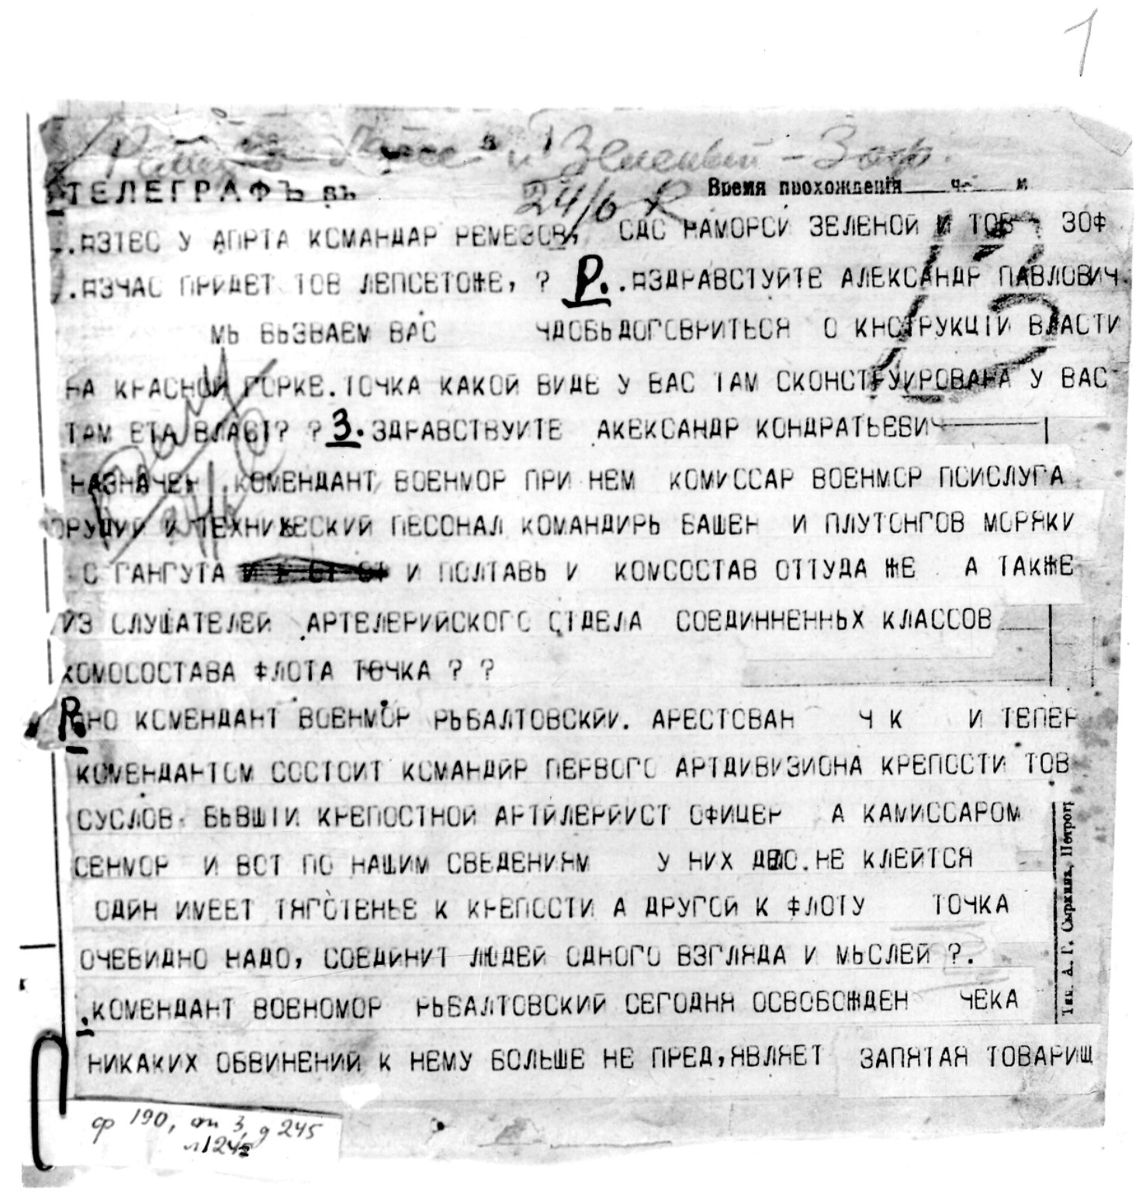 1
и Зеленый - Зоф.
ТЕЛЕГРАФЪ въ
24/6
Время прохожденія ч. м
13
..ЯЗТЕС У АПРТА КОМАНДАР РЕМЕЗОВ, СДС НАМОРСИ ЗЕЛЕНОЙ И ТОВ ЗОФ
.ЯЗЧАС ПРИДЕТ ТОВ ЛЕПСЕТОЖЕ, ? Р..ЯЗДРАВСТУЙТЕ АЛЕКСАНДР ПАВЛОВИЧ.
МЬ ВЬЗВАЕМ ВАС ЧДОБЬДОГОВРИТЬСЯ О КНСТРУКЦІИ ВЛАСТИ
НА КРАСНОЙ ГОРКЕ.ТОЧКА КАКОЙ ВИДЕ У ВАС ТАМ СКОНСТРУИРОВАНА У ВАС
ТАМ ЕТА ВЛАСТ? ? З.ЗДРАВСТВУИТЕ АКЕКСАНДР КОНДРАТЬЕВИЧ
НАЗНАЧЕН КОМЕНДАНТ ВОЕНМОР ПРИ НЕМ КОМИССАР ВОЕНМОР ПСИСЛУГА
ОРУДИЙ И ТЕХНИЧЕСКИЙ ПЕСОНАЛ КОМАНДИРЬ БАШЕН И ПЛУТОНГОВ МОРЯКИ
С ГАНГУТА И ПОЛТАВЬ И КОМСОСТАВ ОТТУДА ЖЕ А ТАКЖЕ
ИЗ СЛУШАТЕЛЕЙ АРТЕЛЕРИЙСКОГО ОТДЕЛА СОЕДИННЕННЬХ КЛАССОВ
КОМОСОСТАВА ФЛОТА ТОЧКА ? ?
Р.НО КОМЕНДАНТ ВОЕНМОР РЬБАЛТОВСКИЙ. АРЕСТОВАН Ч К И ТЕПЕР
КОМЕНДАНТОМ СОСТОИТ КОМАНДИР ПЕРВОГО АРТДИВИЗИОНА КРЕПОСТИ ТОВ
СУСЛОВ. БЬВШІИ КРЕПОСТНОЙ АРТИЛЕРИИСТ ОФИЦЕР А КАМИССАРОМ
ОЕНМОР И ВОТ ПО НАШИМ СВЕДЕНИЯМ У НИХ НЕ КЛЕЙТСЯ
ОДИН ИМЕЕТ ТЯГОТЕНЬЕ К КРЕПОСТИ А ДРУГОЙ К ФЛОТУ ТОЧКА
ОЧЕВИДНО НАДО, СОЕДИНИТ ЛЮДЕЙ ОДНОГО ВЗГЛЯДА И МЬСЛЕЙ ?.
.КОМЕНДАНТ ВОЕНОМОР РЬБАЛТОВСКИЙ СЕГОДНЯ ОСВОБОЖДЕН ЧЕКА
НИКАКИХ ОБВИНЕНИЙ К НЕМУ БОЛЬШЕ НЕ ПРЕД,ЯВЛЯЕТ ЗАПЯТАЯ ТОВАРИЩ
Тип. А. Г. Сыркина, Петрогр
ф 190, оп 3, д 245
л 124